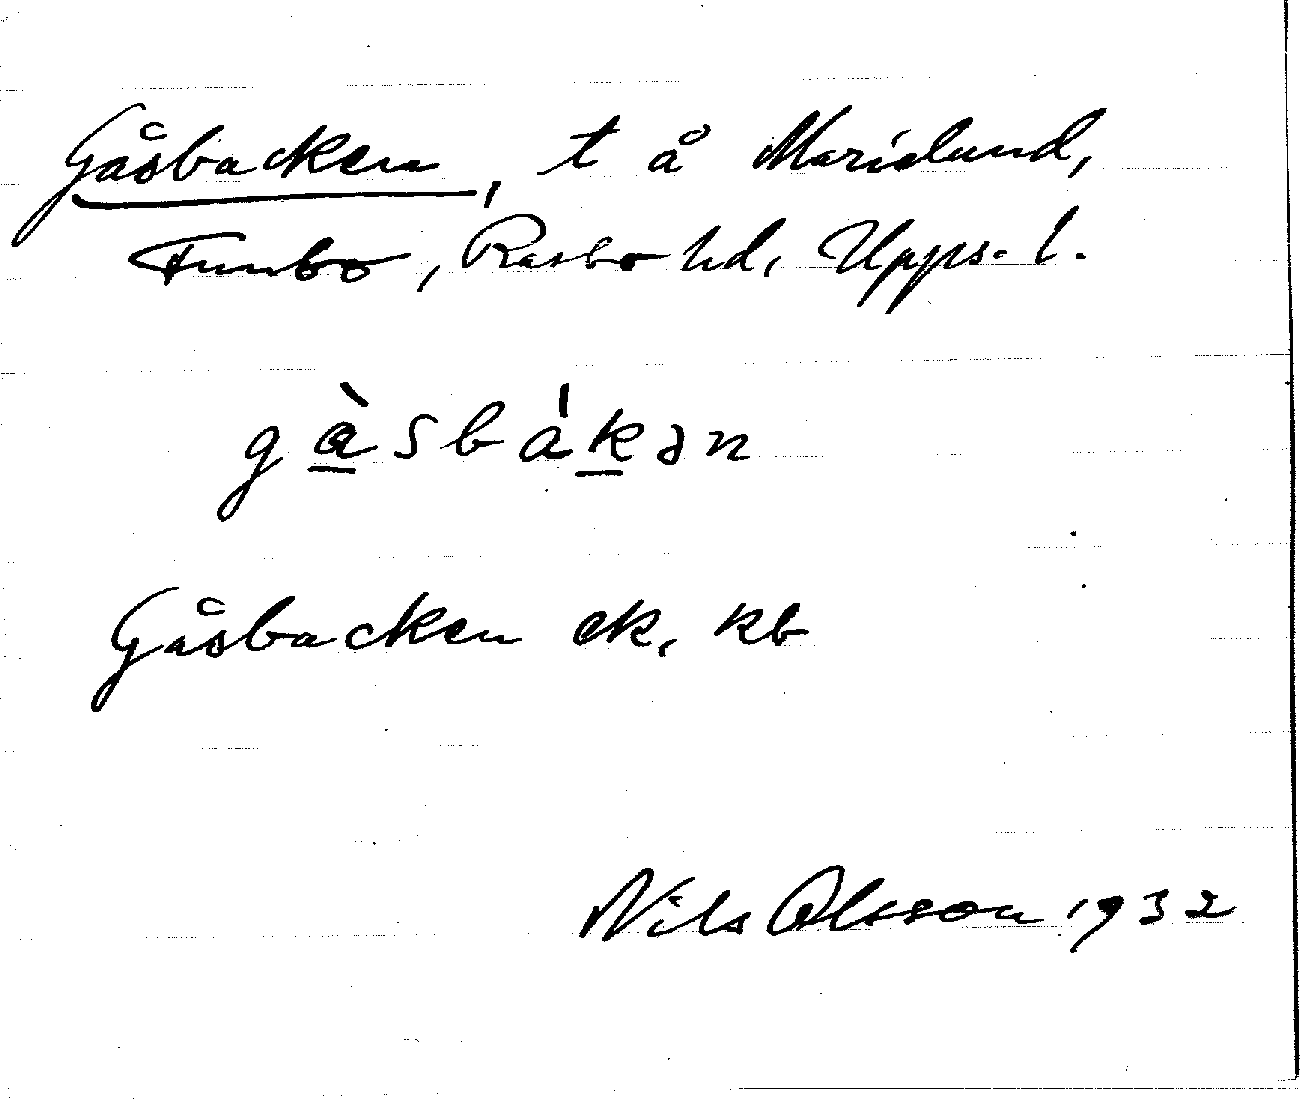 Gåsbacken, t å Marielund,
Funbo, Rasbo hd, Upps. l.
gàsbákən
Gåsbacken ek, kb
Nils Olsson 1932